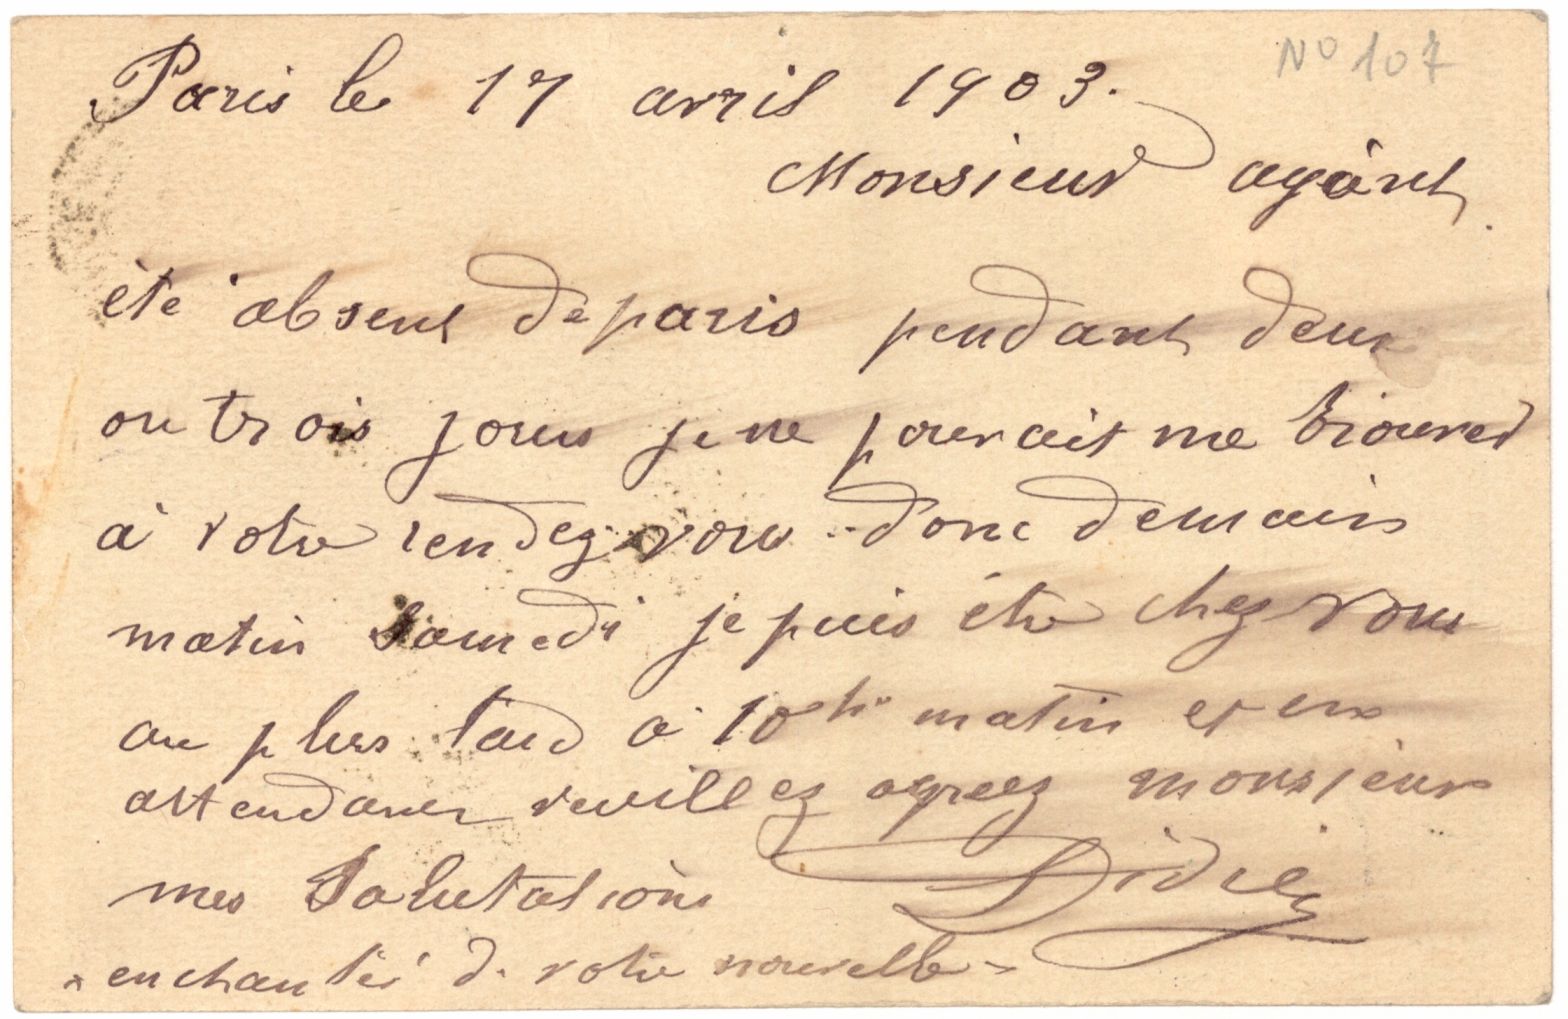 No 107
Paris le 17 avril 1903.
Monsieur ayant
été absent de paris pendant deux
ou trois jours je ne pouvait me trouver
à votre rendez vous donc demain
matin Samedi je puis être chez vous
au plus tard à 10h matin et en
attendant veuillez agreez monsieur
mes Salutations Didier
enchantés de votre nouvelle